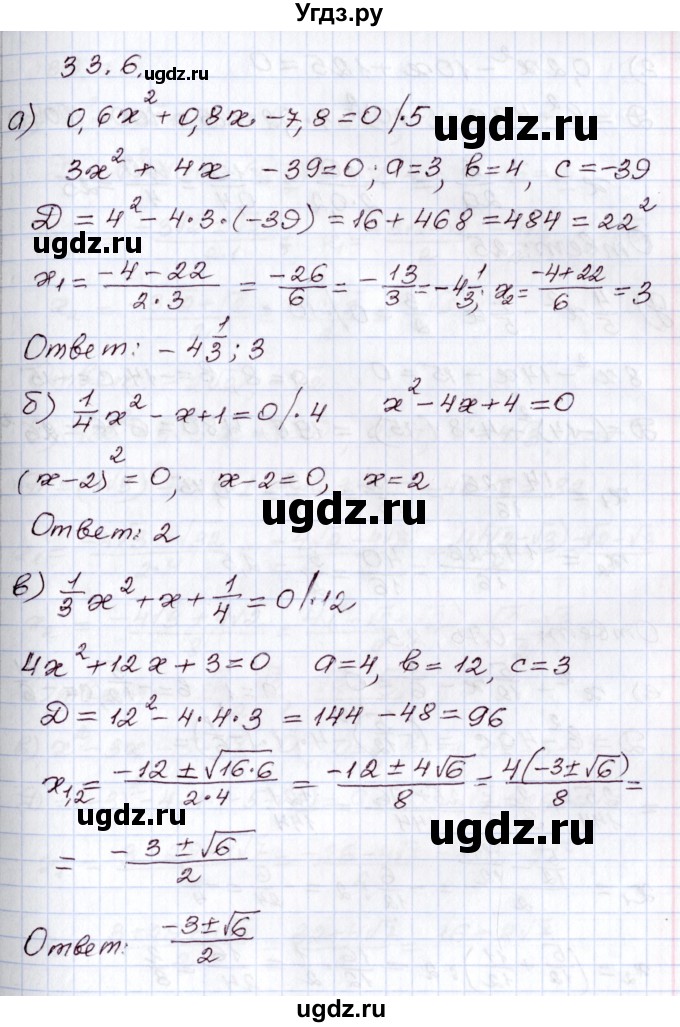 Угдз.ру
33.6.
а) 0,6x² + 0,8x - 7,8 = 0 /·5
ugdz.ru
3x² + 4x - 39 = 0; a=3, b=4, c=-39
Д = 4² - 4·3·(-39) = 16 + 468 = 484 = 22²
ugdz.ru
x₁ = (-4 - 22)/(2·3) = (-26)/6 = -13/3 = -4 1/3; x₂ = (-4+22)/6 = 3
ugdz.ru
Ответ: - 4 1/3; 3
б) 1/4 x² - x + 1 = 0 /·4 x² - 4x + 4 = 0
(x-2)² = 0; x-2=0, x=2
ugdz.ru
Ответ: 2
в) 1/3 x² + x + 1/4 = 0 /·12
ugdz.ru
4x² + 12x + 3 = 0 a=4, b=12, c=3
Д = 12² - 4·4·3 = 144 - 48 = 96
x₁,₂ = (-12 ± √16·6)/(2·4) = (-12 ± 4√6)/8 = 4(-3±√6)/8 =
ugdz.ru
ugdz.ru
= (-3 ± √6)/2
Ответ: (-3±√6)/2
ugdz.ru
ugdz.ru